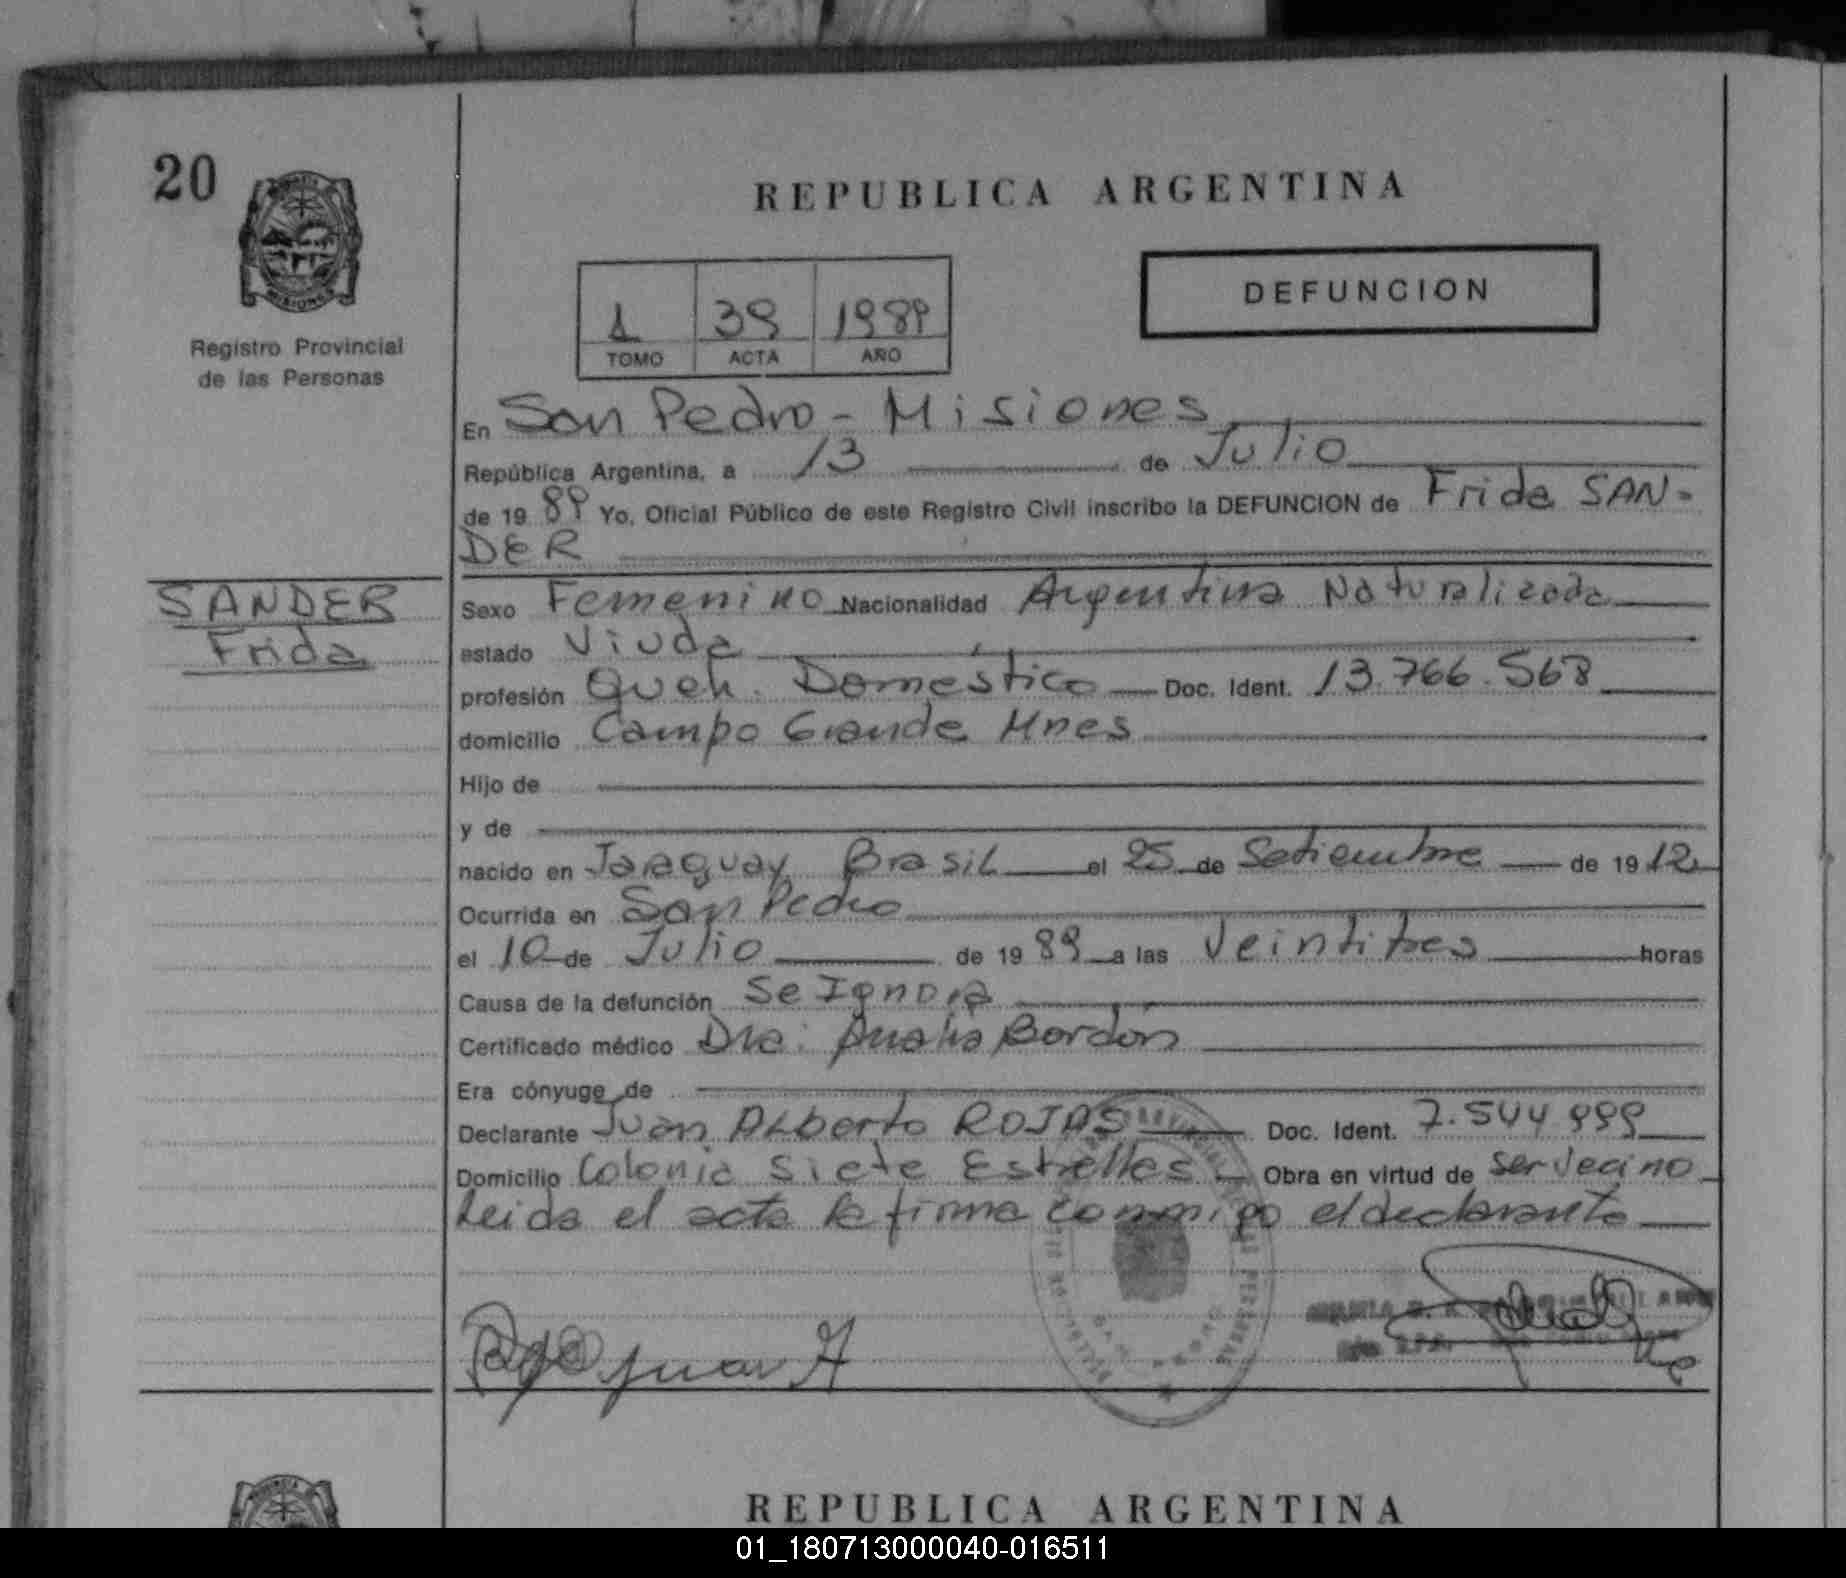 20
MISIONES
Registro Provincial
de las Personas
REPUBLICA ARGENTINA
1 39 1989
TOMO ACTA AÑO
DEFUNCION
En San Pedro - Misiones
República Argentina, a 13 de Julio
de 19 89 Yo, Oficial Público de este Registro Civil inscribo la DEFUNCION de Frida SAN-
DER
SANDER
Frida
Sexo Femenino Nacionalidad Argentina Naturalizada
estado Viuda
profesión Queh. Doméstico Doc. Ident. 13.766.568
domicilio Campo Grande Mnes
Hijo de
y de
nacido en Jaraguay Brasil el 25 de Setiembre de 19 12
Ocurrida en San Pedro
el 10 de Julio de 19 89 a las Veintitres horas
Causa de la defunción Se Ignora
Certificado médico Dra. Analia Bordón
Era cónyuge de
Declarante Juan Alberto ROJAS Doc. Ident. 7.544.999
Domicilio Colonia Siete Estrellas Obra en virtud de ser vecino
Leida el acta la firma conmigo el declarante
Juan A
REPUBLICA ARGENTINA
01_180713000040-016511